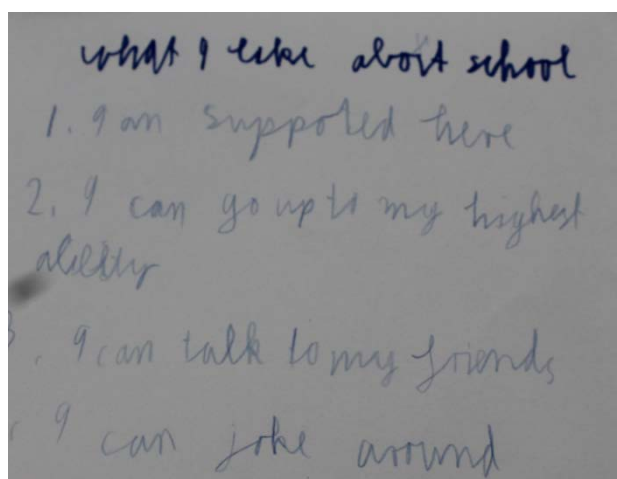 what I like aboit school
1. I am suppoted here
2. I can go up to my highest
ability
3. I can talk to my friends
I can joke around